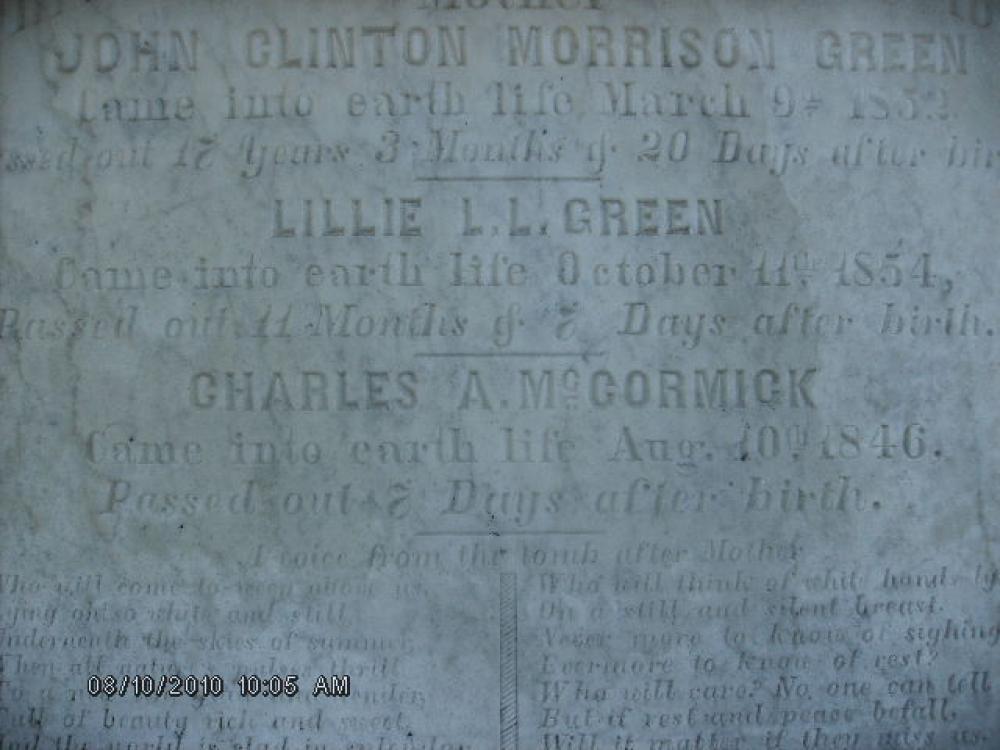 Mother
JOHN CLINTON MORRISON GREEN
Came into earth life March 9th 1852.
ssed out 17 Years 3 Months & 20 Days after bir
LILLIE L. L. GREEN
Came into earth life October 11th 1854,
Passed out 11 Months & 7 Days after birth.
CHARLES A. McCORMICK
Came into earth life Aug. 10th 1846.
Passed out 7 Days after birth.
A voice from the tomb after Mother
Who will come to weep above us,
ying oh so white and still
Underneath the skies of summer,
Then all nature's pulses thrill
To a n
Full of beauty rich and sweet,
nd the world is clad in splendor
Who will think of white hands ly
On a still and silent breast.
Never more to know of sighing
Evermore to know of rest?
Who will care? No one can tell
But if rest and peace befall,
Will it matter if they miss us.
08/10/2010 10:05 AM